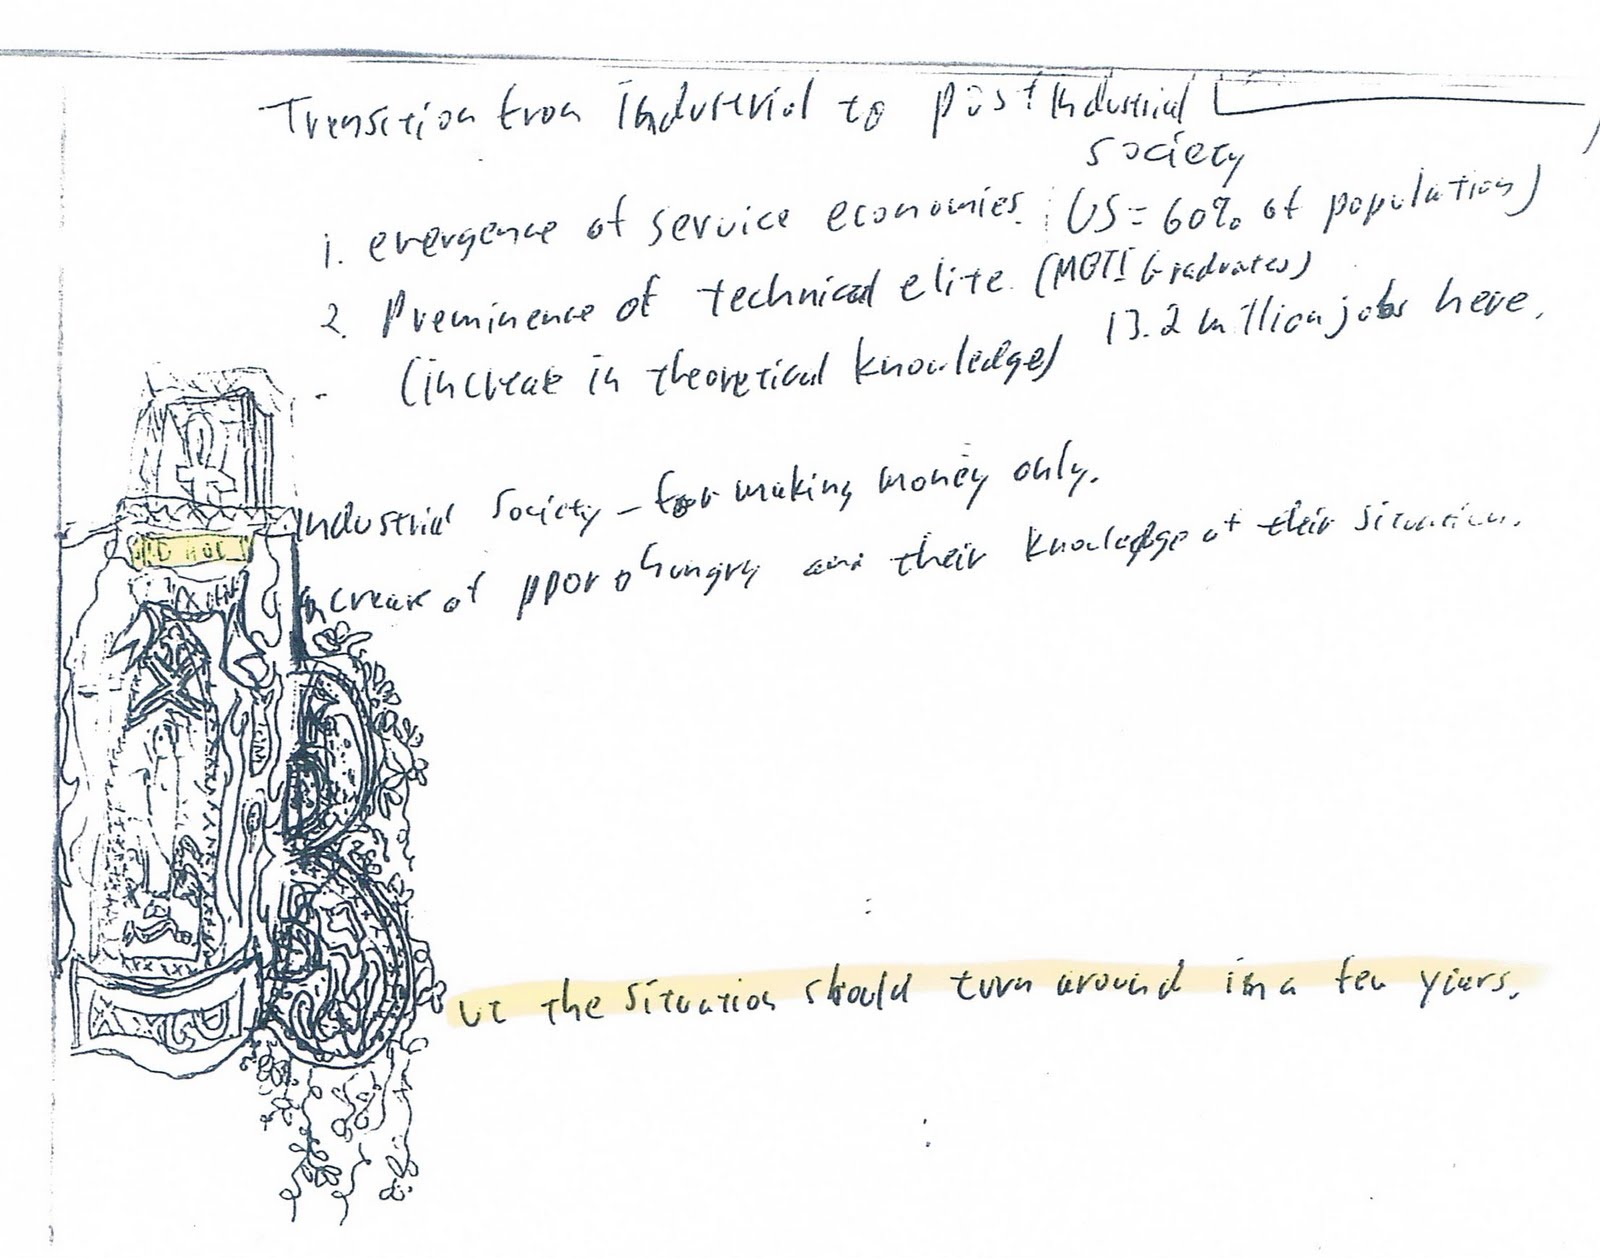 Transition from Industrial to post Industrial
society
1. emergence of service economies. (US = 60% of population)
2. Preminence of technical elite. (MBTI Graduates)
(increase in theoretical knowledge) 13.2 million jobs here.
Industrial Society - for making money only.
increase of ppor o hungry and their knowledge of their situation.
ut the situation should turn around in a few years.